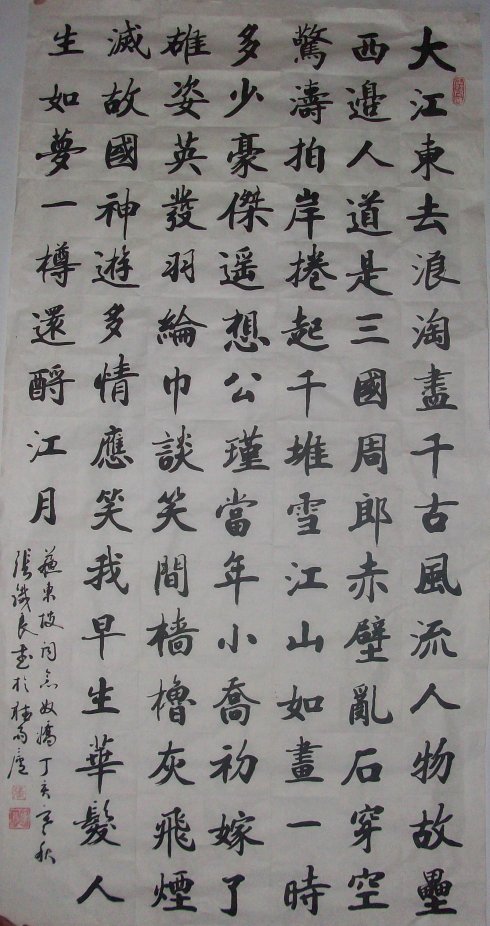 大江東去浪淘盡千古風流人物故壘
西邊人道是三國周郎赤壁亂石穿空
驚濤拍岸捲起千堆雪江山如畫一時
多少豪傑遥想公瑾當年小喬初嫁了
雄姿英發羽綸巾談笑間檣櫓灰飛煙
滅故國神遊多情應笑我早生華髮人
生如夢一樽還酹江月
蘇東坡词念奴嬌丁亥秋
張鐵良書於廬